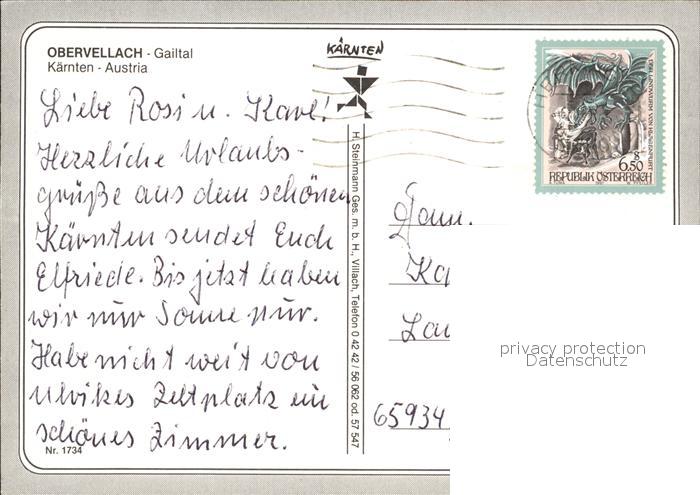 OBERVELLACH - Gailtal
Kärnten - Austria
KÄRNTEN
Liebe Rosi u. Karl!
Herzliche Urlaubs-
grüße aus dem schönen
Kärnten sendet Euch
Elfriede. Bis jetzt haben
wir nur Sonne pur.
Habe nicht weit von
Ulrikes Zeltplatz ein
schönes Zimmer.
Nr. 1734
H. Steinmann Ges. m. b. H., Villach, Telefon 0 42 42 / 56 062 od. 57 547
DER LINDWURM VON KLAGENFURT
S
6.50
REPUBLIK ÖSTERREICH
Fam.
Ka
Lau
65934
privacy protection
Datenschutz